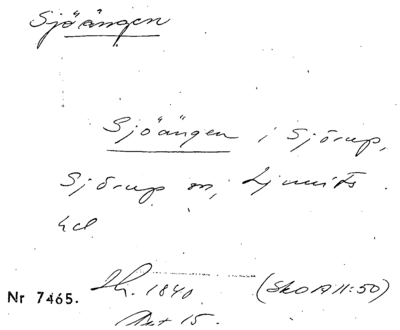 Sjöängen
Sjöängen i Sjörup,
Sjörup sn, Ljunits
hd
Sh. 1840 (Sko A II:50)
Nr 7465.
Akt 15.